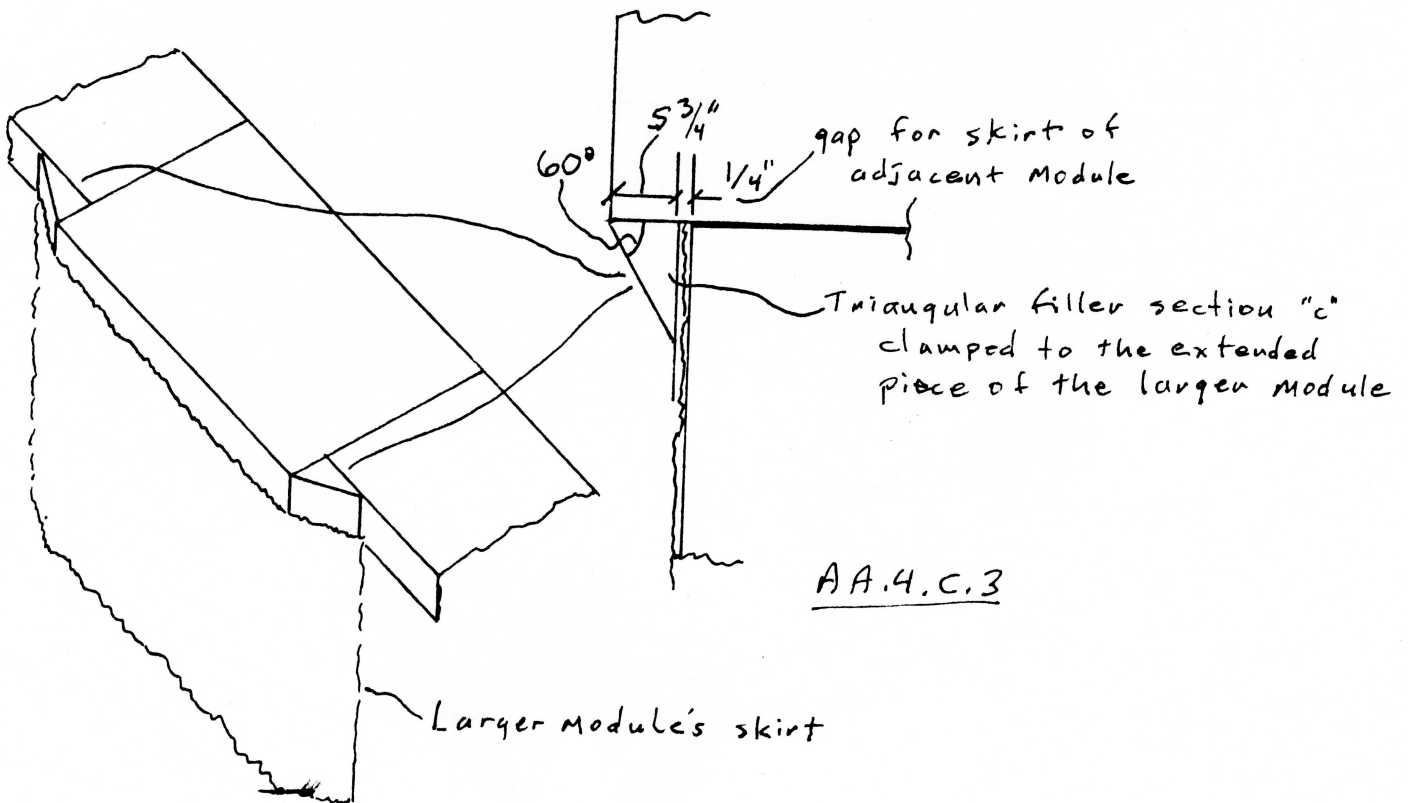 5 3/4"
60°
1/4"
gap for skirt of
adjacent Module
Triangular filler section "c"
clamped to the extended
piece of the larger module
AA.4.C.3
Larger module's skirt